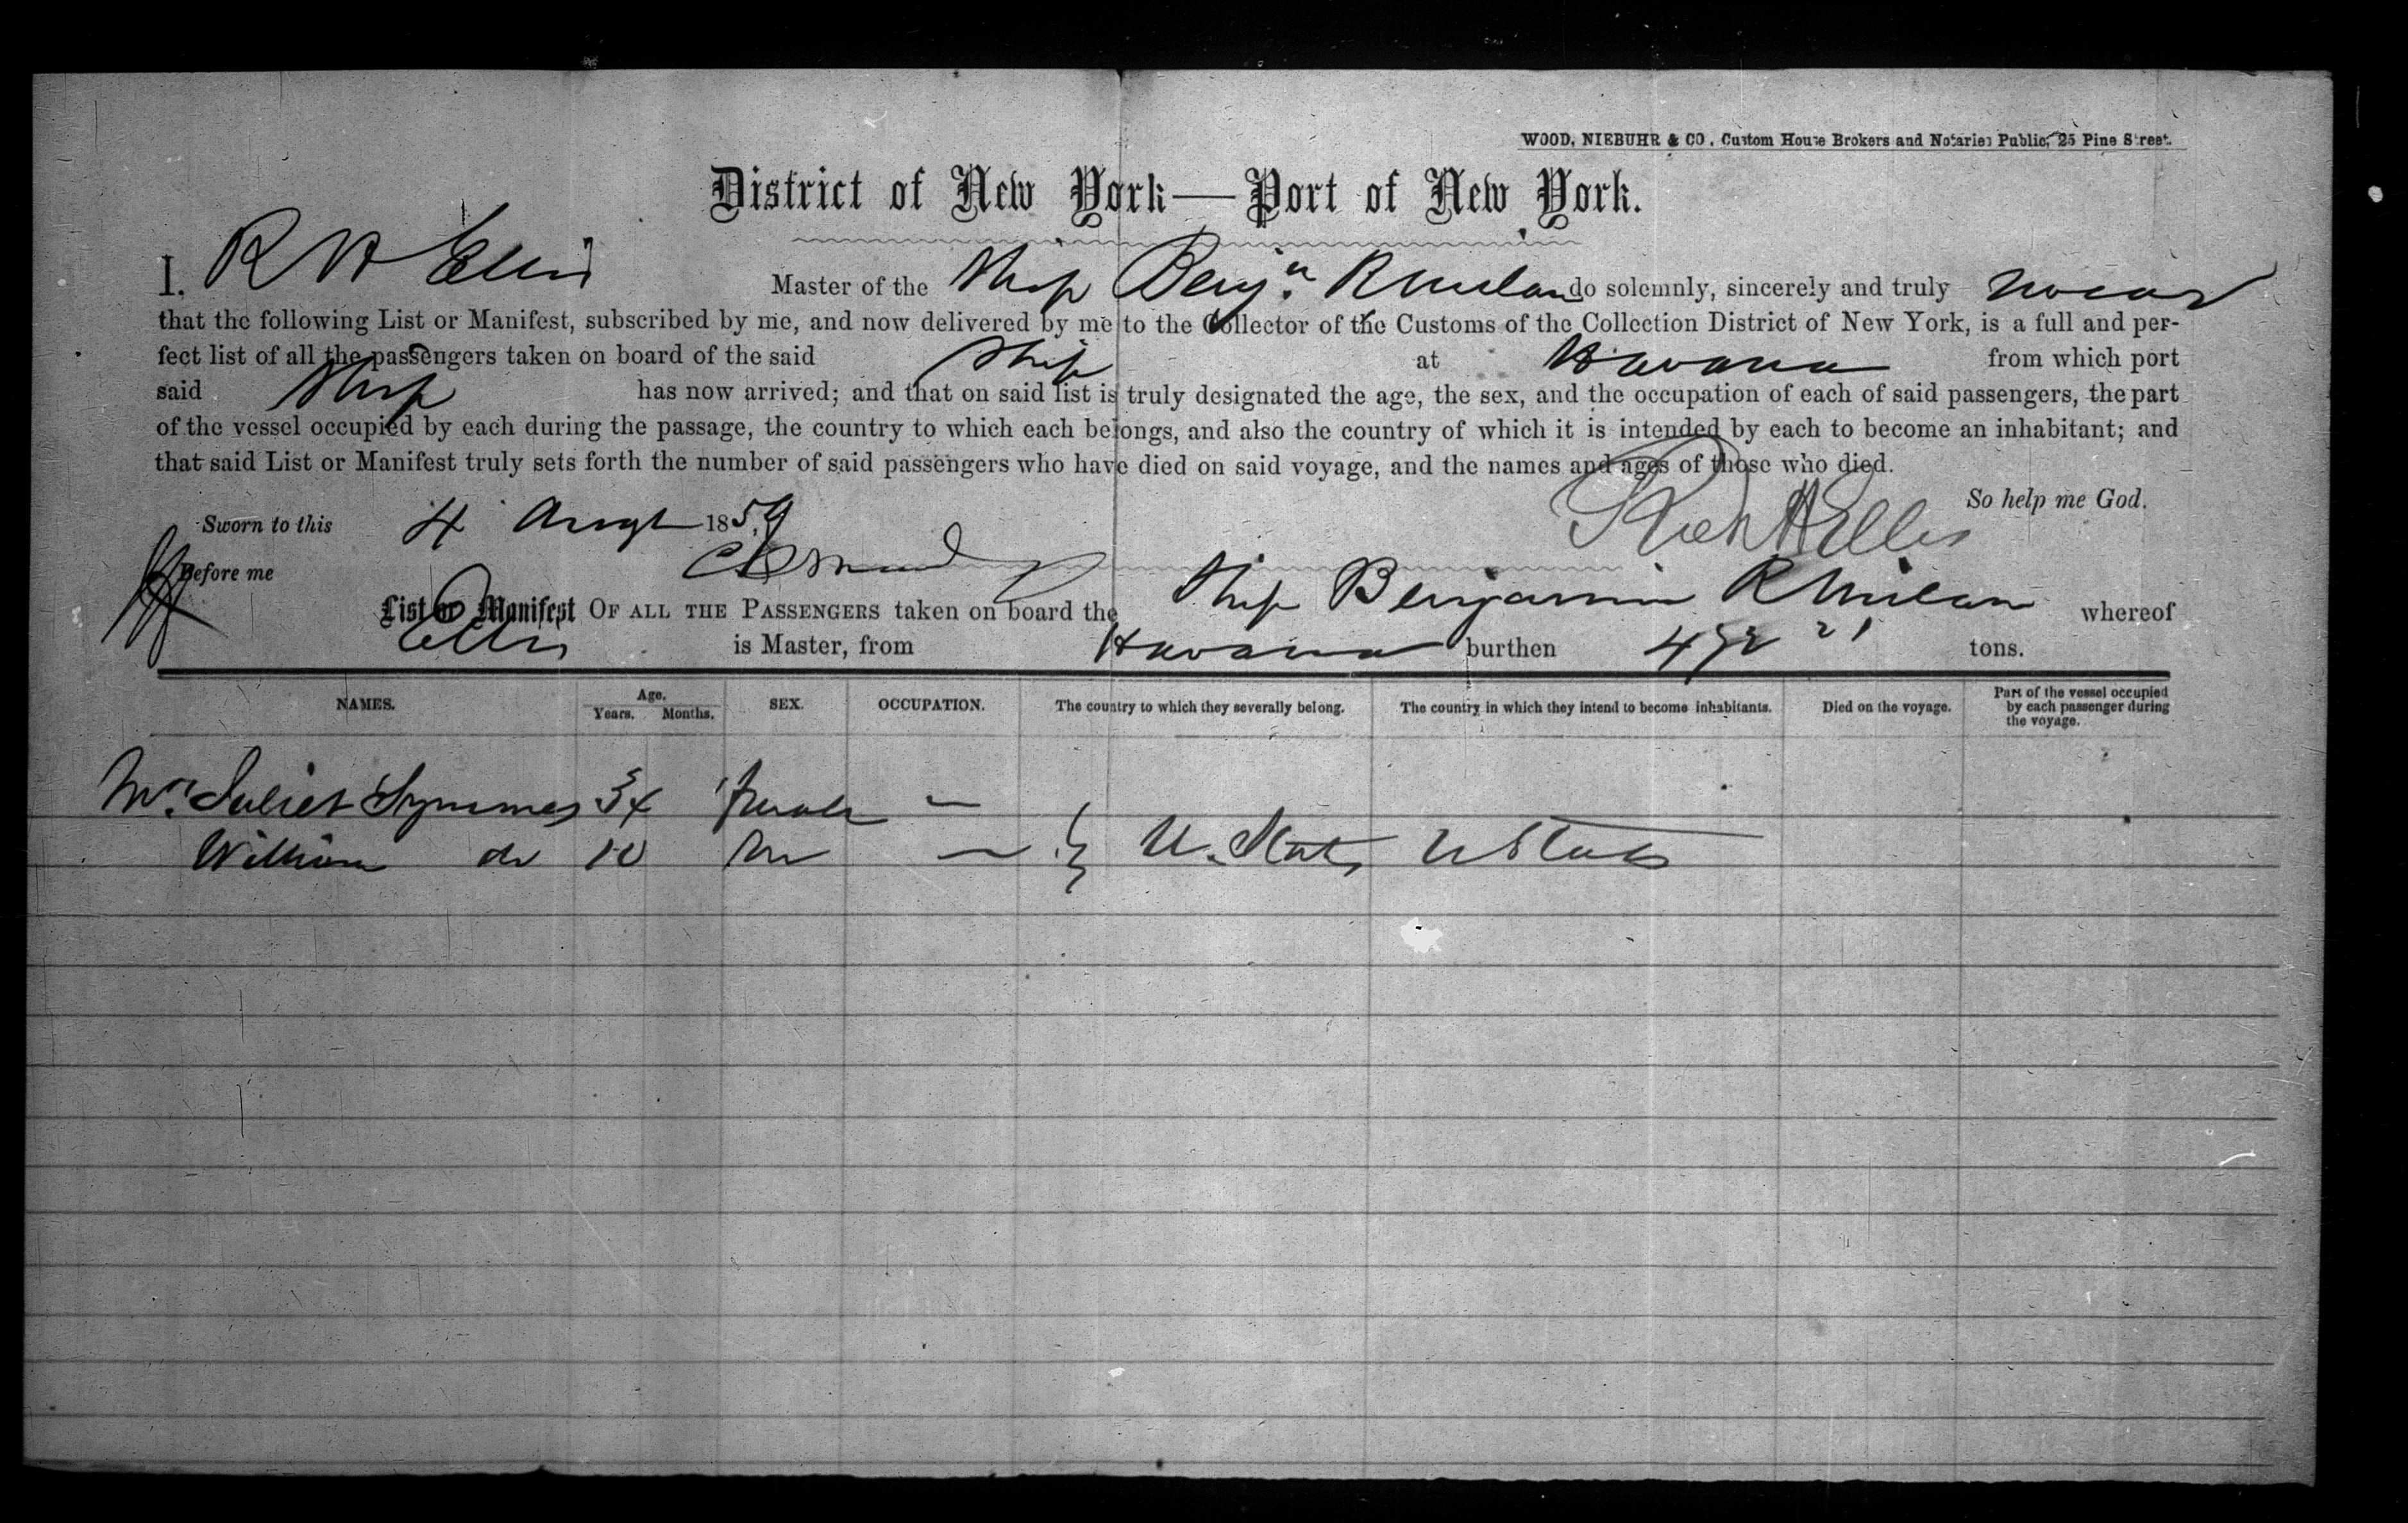 WOOD, NIEBUHR & CO. Custom House Brokers and Notaries Public, 25 Pine Street.
District of New York—Port of New York.
I, R H Ellis Master of the Ship Benjn. do solemnly, sincerely and truly swear
that the following List or Manifest, subscribed by me, and now delivered by me to the Collector of the Customs of the Collection District of New York, is a full and per-
fect list of all the passengers taken on board of the said Ship at Havana from which port
said Ship has now arrived; and that on said list is truly designated the age, the sex, and the occupation of each of said passengers, the part
of the vessel occupied by each during the passage, the country to which each belongs, and also the country of which it is intended by each to become an inhabitant; and
that said List or Manifest truly sets forth the number of said passengers who have died on said voyage, and the names and ages of those who died.
So help me God.
Sworn to this 4 Augt 1859 Rich H Ellis
Before me
List or Manifest OF ALL THE PASSENGERS taken on board the Ship Benjamin whereof
Ellis is Master, from Havana burthen tons.
NAMES. Age. Years. Months. SEX. OCCUPATION. The country to which they severally belong. The country in which they intend to become inhabitants. Died on the voyage. Part of the vessel occupied by each passenger during the voyage.
Mrs. Juliet Symmes 34 female —
William do 10 M — U. States U States